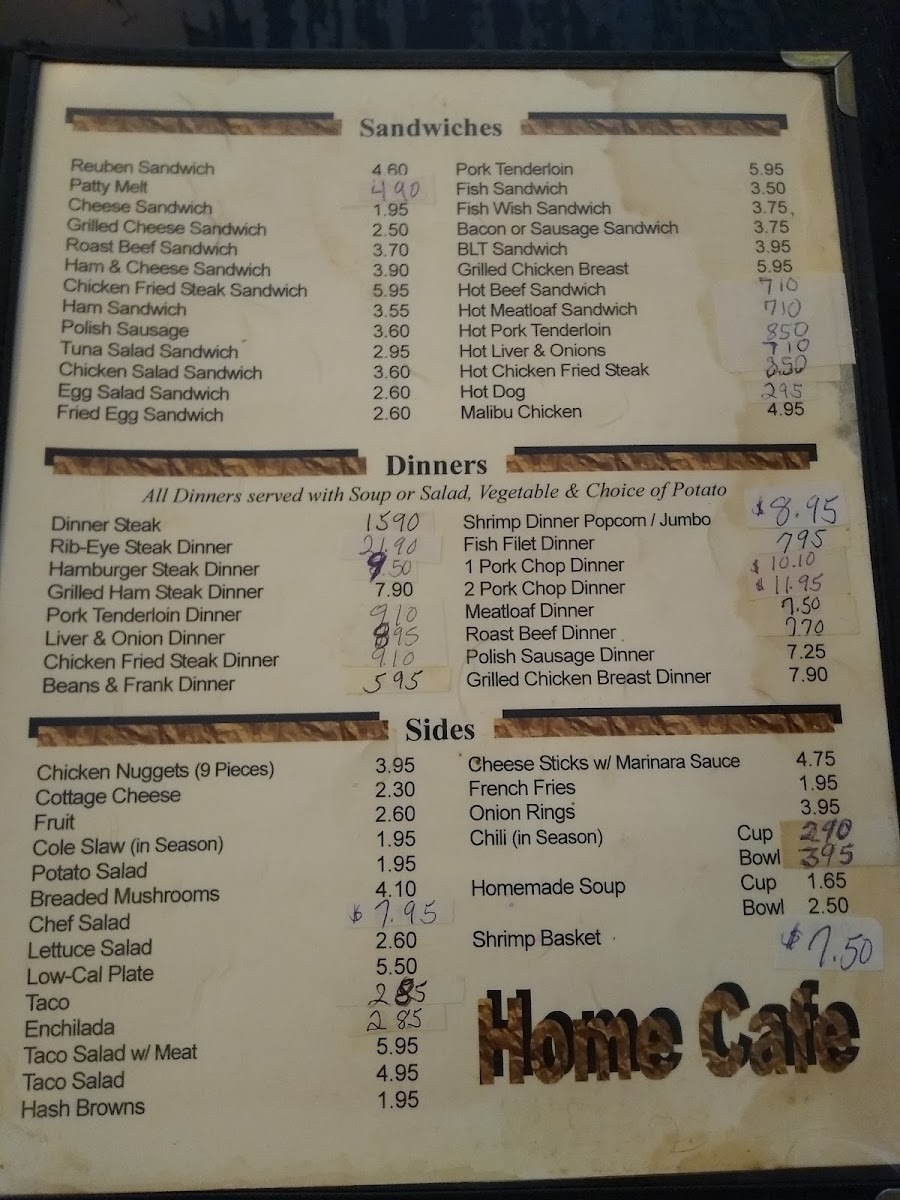 Sandwiches
Reuben Sandwich 4.60
Patty Melt 490
Cheese Sandwich 1.95
Grilled Cheese Sandwich 2.50
Roast Beef Sandwich 3.70
Ham & Cheese Sandwich 3.90
Chicken Fried Steak Sandwich 5.95
Ham Sandwich 3.55
Polish Sausage 3.60
Tuna Salad Sandwich 2.95
Chicken Salad Sandwich 3.60
Egg Salad Sandwich 2.60
Fried Egg Sandwich 2.60
Pork Tenderloin 5.95
Fish Sandwich 3.50
Fish Wish Sandwich 3.75
Bacon or Sausage Sandwich 3.75
BLT Sandwich 3.95
Grilled Chicken Breast 5.95
Hot Beef Sandwich 710
Hot Meatloaf Sandwich 710
Hot Pork Tenderloin 850
Hot Liver & Onions 710
Hot Chicken Fried Steak 850
Hot Dog 295
Malibu Chicken 4.95
Dinners
All Dinners served with Soup or Salad, Vegetable & Choice of Potato
Dinner Steak 1590
Rib-Eye Steak Dinner 21.90
Hamburger Steak Dinner 9.50
Grilled Ham Steak Dinner 7.90
Pork Tenderloin Dinner 910
Liver & Onion Dinner 895
Chicken Fried Steak Dinner 9.10
Beans & Frank Dinner 595
Shrimp Dinner Popcorn / Jumbo $8.95
Fish Filet Dinner 795
1 Pork Chop Dinner $10.10
2 Pork Chop Dinner $11.95
Meatloaf Dinner 7.50
Roast Beef Dinner 7.70
Polish Sausage Dinner 7.25
Grilled Chicken Breast Dinner 7.90
Sides
Chicken Nuggets (9 Pieces) 3.95
Cottage Cheese 2.30
Fruit 2.60
Cole Slaw (in Season) 1.95
Potato Salad 1.95
Breaded Mushrooms 4.10
Chef Salad $7.95
Lettuce Salad 2.60
Low-Cal Plate 5.50
Taco 285
Enchilada 285
Taco Salad w/ Meat 5.95
Taco Salad 4.95
Hash Browns 1.95
Cheese Sticks w/ Marinara Sauce 4.75
French Fries 1.95
Onion Rings 3.95
Chili (in Season) Cup 290
Bowl 395
Homemade Soup Cup 1.65
Bowl 2.50
Shrimp Basket $7.50
Home Cafe